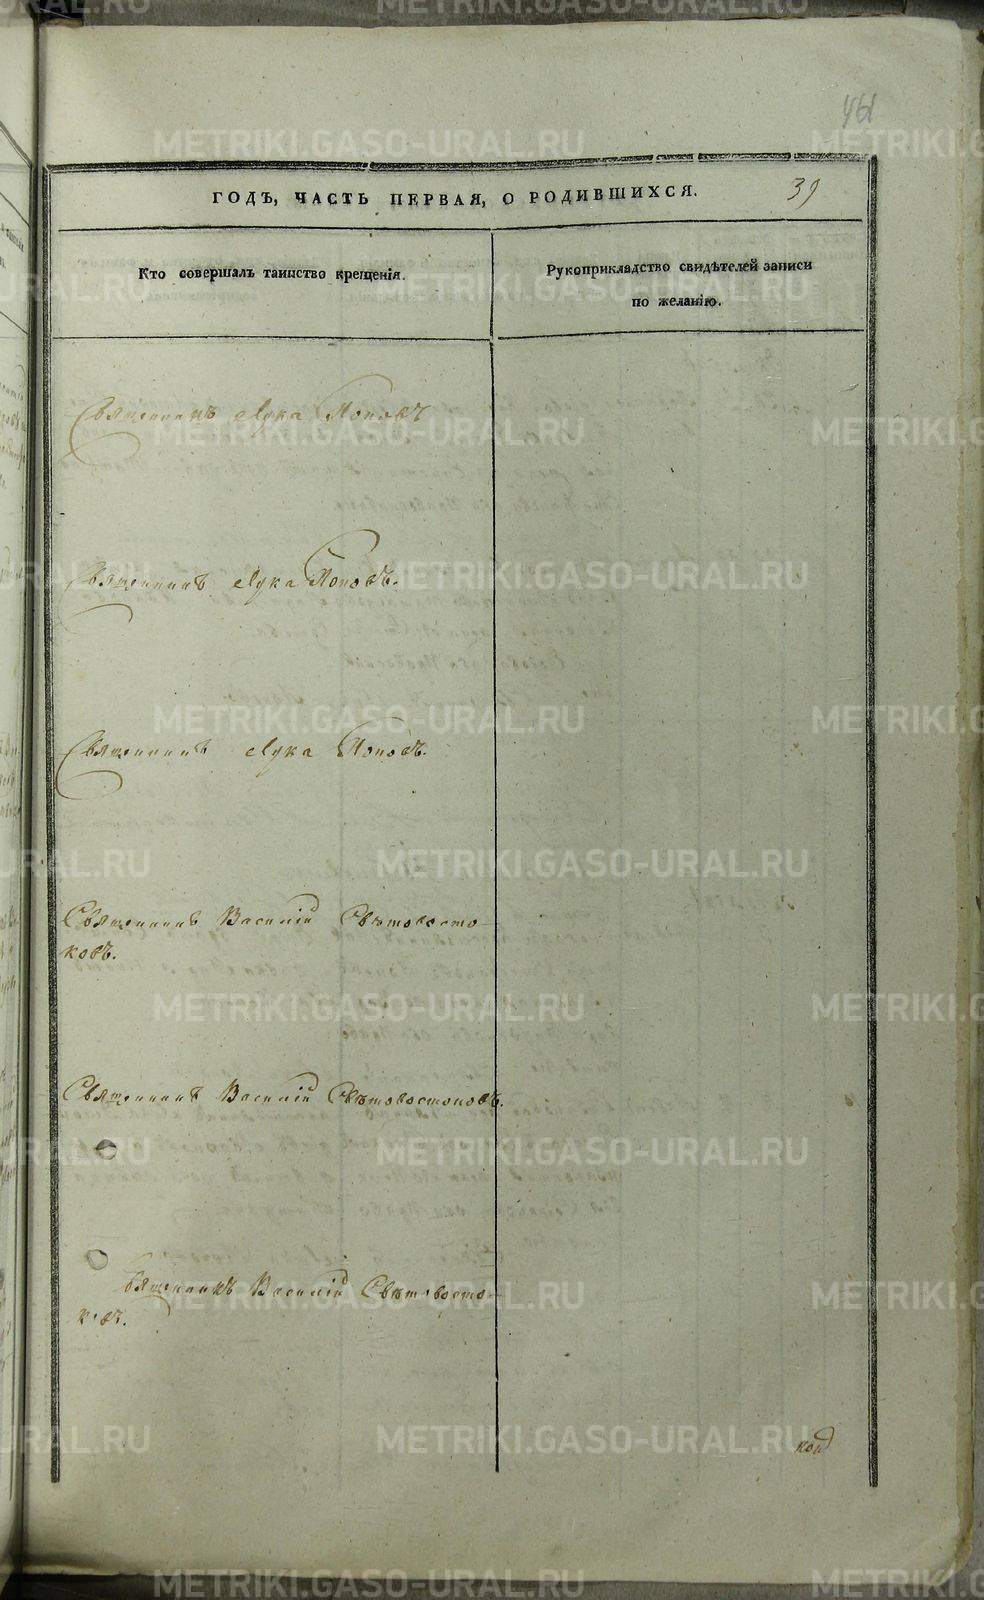 461
ГОДЪ, ЧАСТЬ ПЕРВАЯ, О РОДИВШИХСЯ.
39
Кто совершалъ таинство крещенія.
Рукоприкладство свидѣтелей записи
по желанію.
Священникъ Лука Поповъ
Священникъ Лука Поповъ.
Священникъ Лука Поповъ.
Священникъ Василій Свѣтовосто-
ковъ.
Священникъ Василій Свѣтовостоковъ.
Священникъ Василій Свѣтовосто-
ковъ.
METRIKI.GASO-URAL.RU